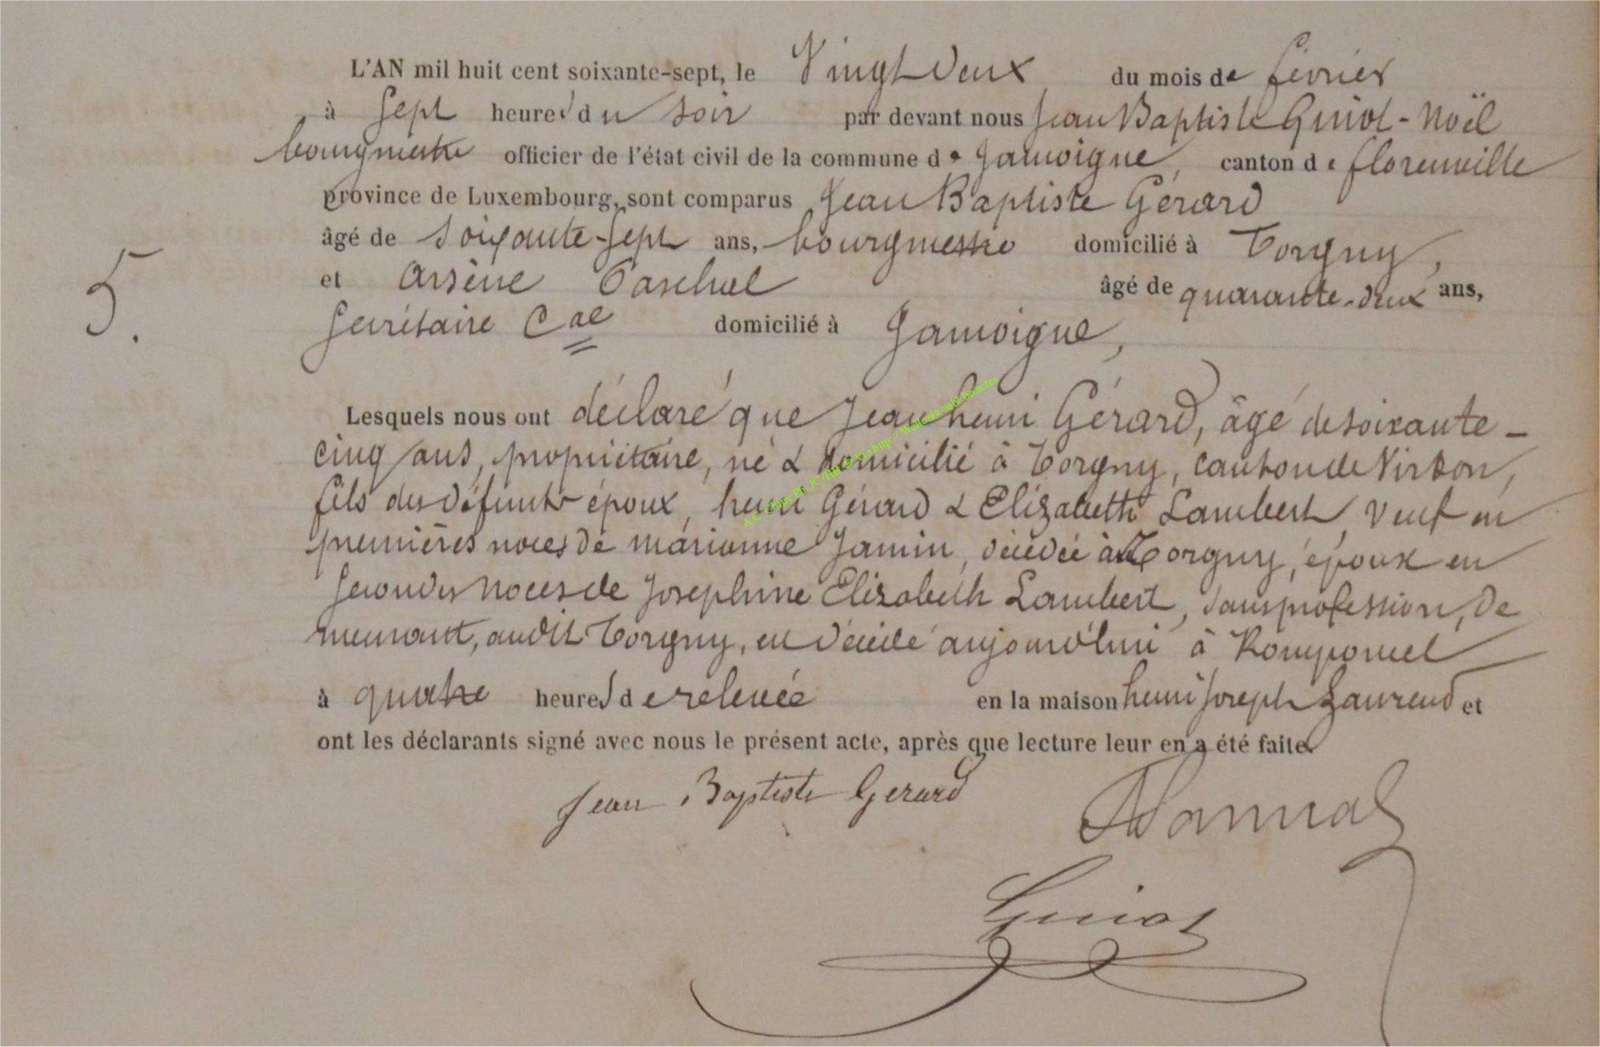 L'AN mil huit cent soixante-sept, le Vingt deux du mois de février
à sept heures du soir par devant nous Jean Baptiste Guiot-Noël
bourgmestre officier de l'état civil de la commune de Jamoigne, canton de florenville
province de Luxembourg, sont comparus Jean Baptiste Gérard
âgé de soixante-sept ans, bourgmestre domicilié à Torgny,
5.
et Arsène âgé de quarante-deux ans,
Secrétaire Cal domicilié à Jamoigne,
Lesquels nous ont déclaré que Jean henri Gérard, âgé de soixante-
cinq ans, propriétaire, né & domicilié à Torgny, canton de Virton,
fils des défunts époux, henri Gérard & Elizabeth Lambert, veuf en
premières noces de marianne Jamin, décédée à Torgny, époux en
secondes noces de Josephine Elizabeth Lambert, sans profession, de
meurant, audit Torgny, est décédé aujourd'hui à Romponcel
à quatre heures de relevée en la maison henri Joseph Laurend et
ont les déclarants signé avec nous le présent acte, après que lecture leur en a été faite.
Jean Baptiste Gerard
Guiot